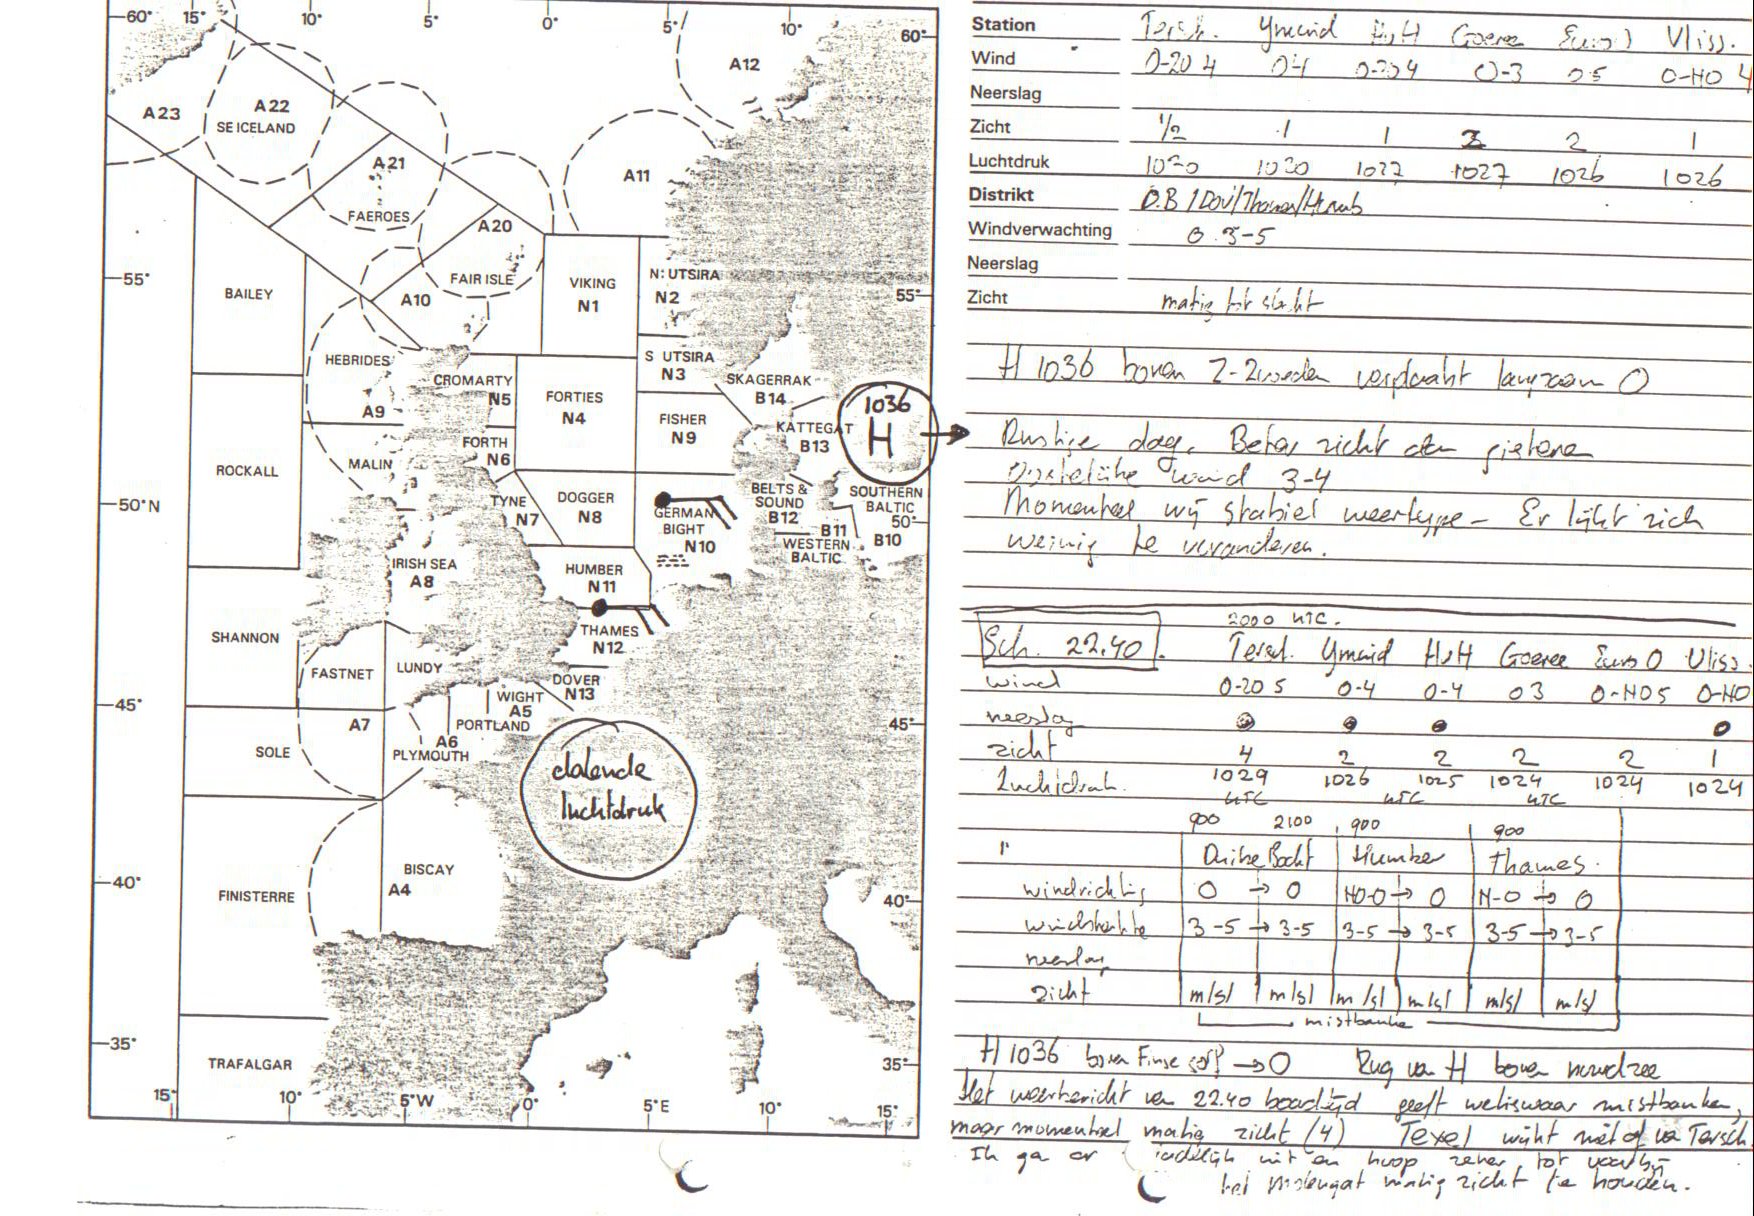 60° 15° 10° 5° 0° 5° 10° 60°
A12
A23
A22
SE ICELAND
A21
FAEROES
A11
A20
FAIR ISLE
A10
55°
BAILEY
VIKING
N1
N. UTSIRA
N2
55°
HEBRIDES
A9
CROMARTY
N5
FORTIES
N4
S UTSIRA
N3
SKAGERRAK
B14
1036
H
FISHER
N9
KATTEGAT
B13
ROCKALL
MALIN
FORTH
N6
50°N
TYNE
N7
DOGGER
N8
GERMAN
BIGHT
N10
BELTS &
SOUND
B12
SOUTHERN
BALTIC
50°
B11
WESTERN
BALTIC
B10
IRISH SEA
A8
HUMBER
N11
SHANNON
THAMES
N12
FASTNET
LUNDY
DOVER
N13
WIGHT
A5
PORTLAND
45°
A7
A6
PLYMOUTH
45°
SOLE
dalende
luchtdruk
40°
BISCAY
A4
FINISTERRE
40°
35°
TRAFALGAR
35°
15° 10° 5°W 0° 5°E 10° 15°
Station Tersch. Ymuid HvH Goeree Euro Vliss.
Wind O-ZO 4 O4 O-ZO 4 O-3 O5 O-NO 4
Neerslag
Zicht 1/2 1 1 2 2 1
Luchtdruk 1030 1030 1027 1027 1026 1026
Distrikt D.B/Dov/Thames/Humb
Windverwachting O. 3-5
Neerslag
Zicht matig tot slecht
H 1036 boven Z-Zweden verplaatst langzaam O
Rustige dag. Beter zicht dan gisteren
Oostelijke wind 3-4
Momenteel vrij stabiel weertype - Er lijkt zich
weinig te veranderen.
2000 UTC.
Sch. 22.40. Tersch. Ymuid HvH Goeree Euro O Vliss.
wind O-ZO 5 O-4 O-4 O3 O-NO5 O-NO
neerslag
zicht 4 2 2 2 2 1
Luchtdruk. 1029 1026 1025 1024 1024 1024
UTC UTC UTC
900 2100 900 900
Duitse Bocht Humber Thames.
windrichting O → O NO-O → O N-O → O
windsterkte 3-5 → 3-5 3-5 → 3-5 3-5 → 3-5
neerslag
zicht m/s/ m/s/ m/s/ m/s/ m/s/ m/s/
mistbanken
H 1036 boven Finse golf → O Rug van H boven noordzee
Het weerbericht van 22.40 boordtijd geeft weliswaar mistbanken,
maar momenteel matig zicht (4) Texel wijkt niet af van Tersch.
Ik ga er uit en hoop zeker tot voorbij
het Molengat matig zicht te houden.